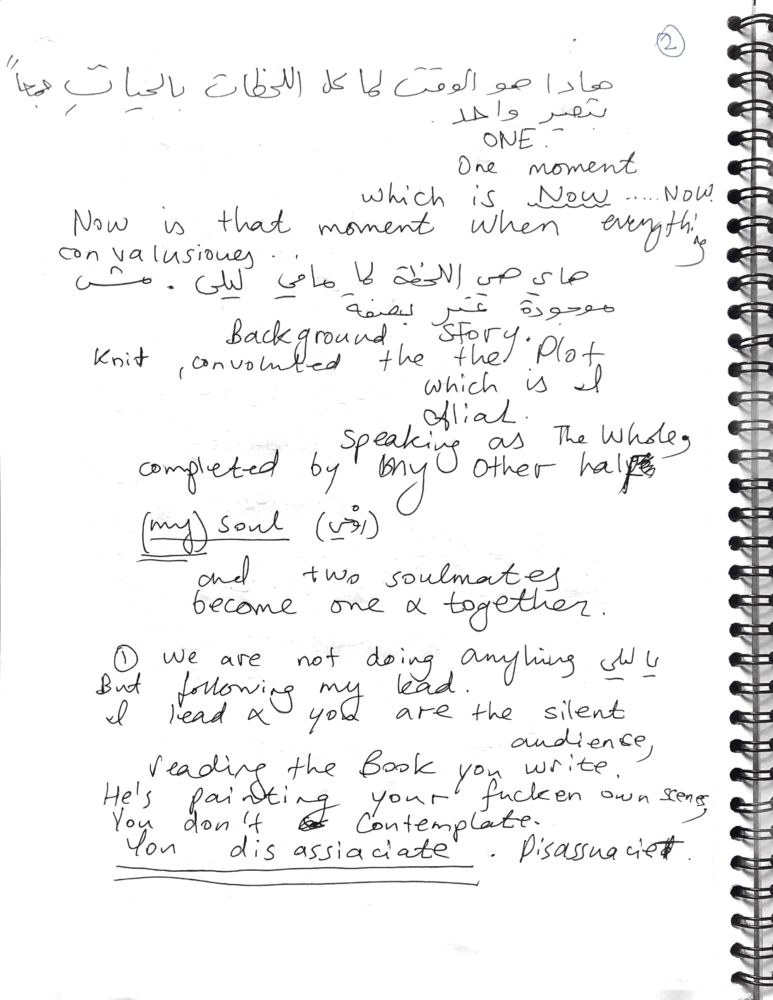 2
هاذا هو الوقت لما كل اللحظات بالحيات
بتصير واحد
ONE.
One moment
which is Now ..... Now.
Now is that moment when everything
convalusiones..
هاي هي اللحظة لما مافي ليلى . مش
موجودة غير بصفة
Background story.
Knit, convoluted the the Plot
which is I
speaking as The Whole,
completed by my other half
(my) soul
and two soulmates
become one & together.
① we are not doing anything يا ليلى
But following my lead.
I lead & you are the silent
audience,
reading the Book you write.
He's painting your fucken own scenes,
You don't contemplate.
You dis assiaciate . Disassuaciet.